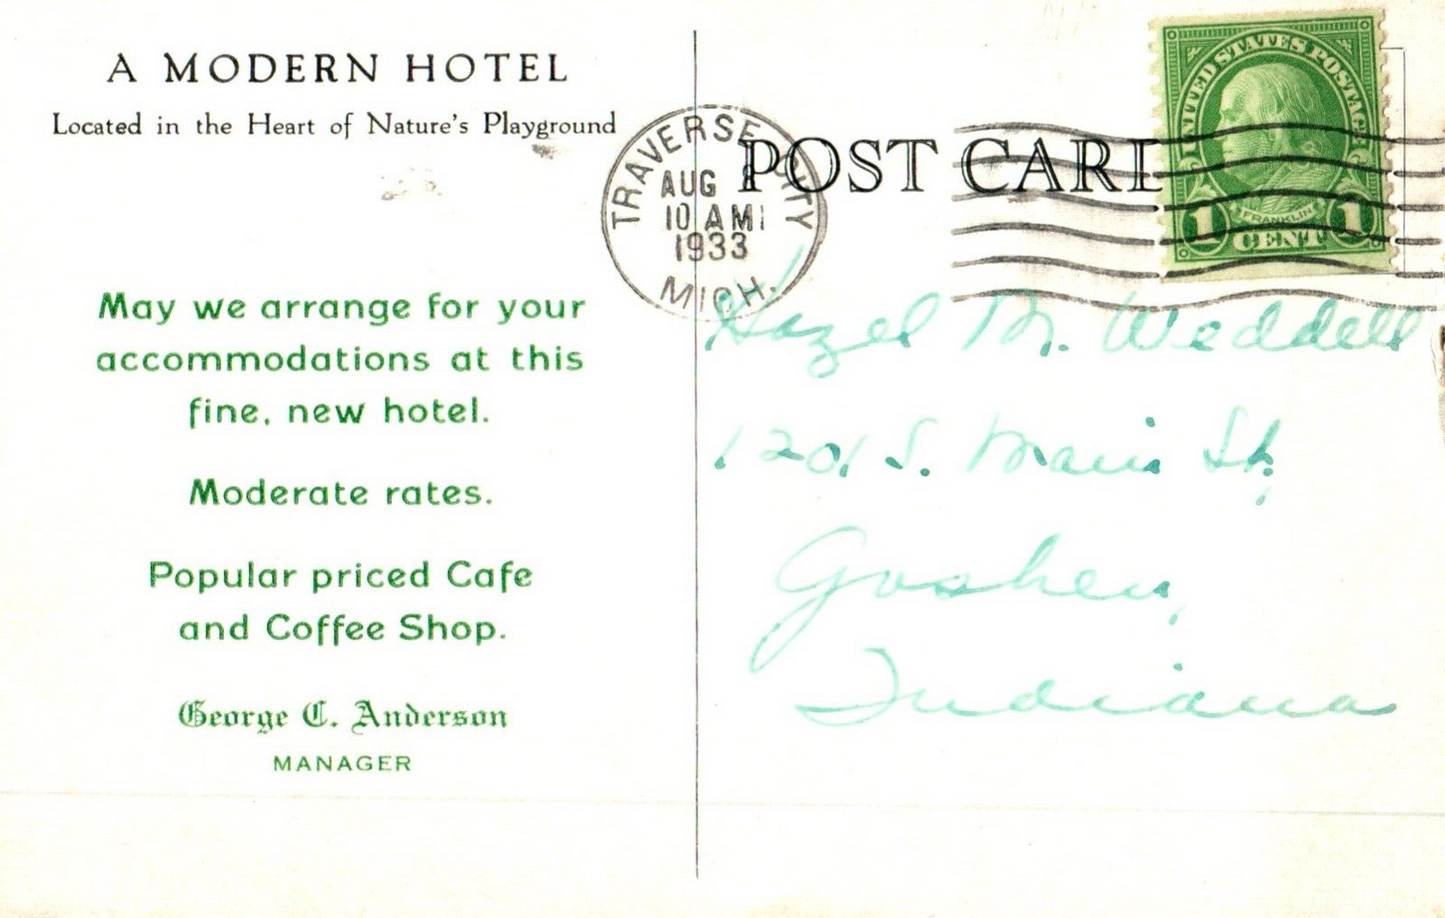 A MODERN HOTEL
Located in the Heart of Nature's Playground
May we arrange for your
accommodations at this
fine, new hotel.
Moderate rates.
Popular priced Cafe
and Coffee Shop.
George C. Anderson
MANAGER
TRAVERSE CITY
AUG
10 AM
1933
MICH.
POST CARD
UNITED STATES POSTAGE
FRANKLIN
1 CENT 1
Hazel M. Weddell
1201 S. Main St,
Goshen,
Indiana